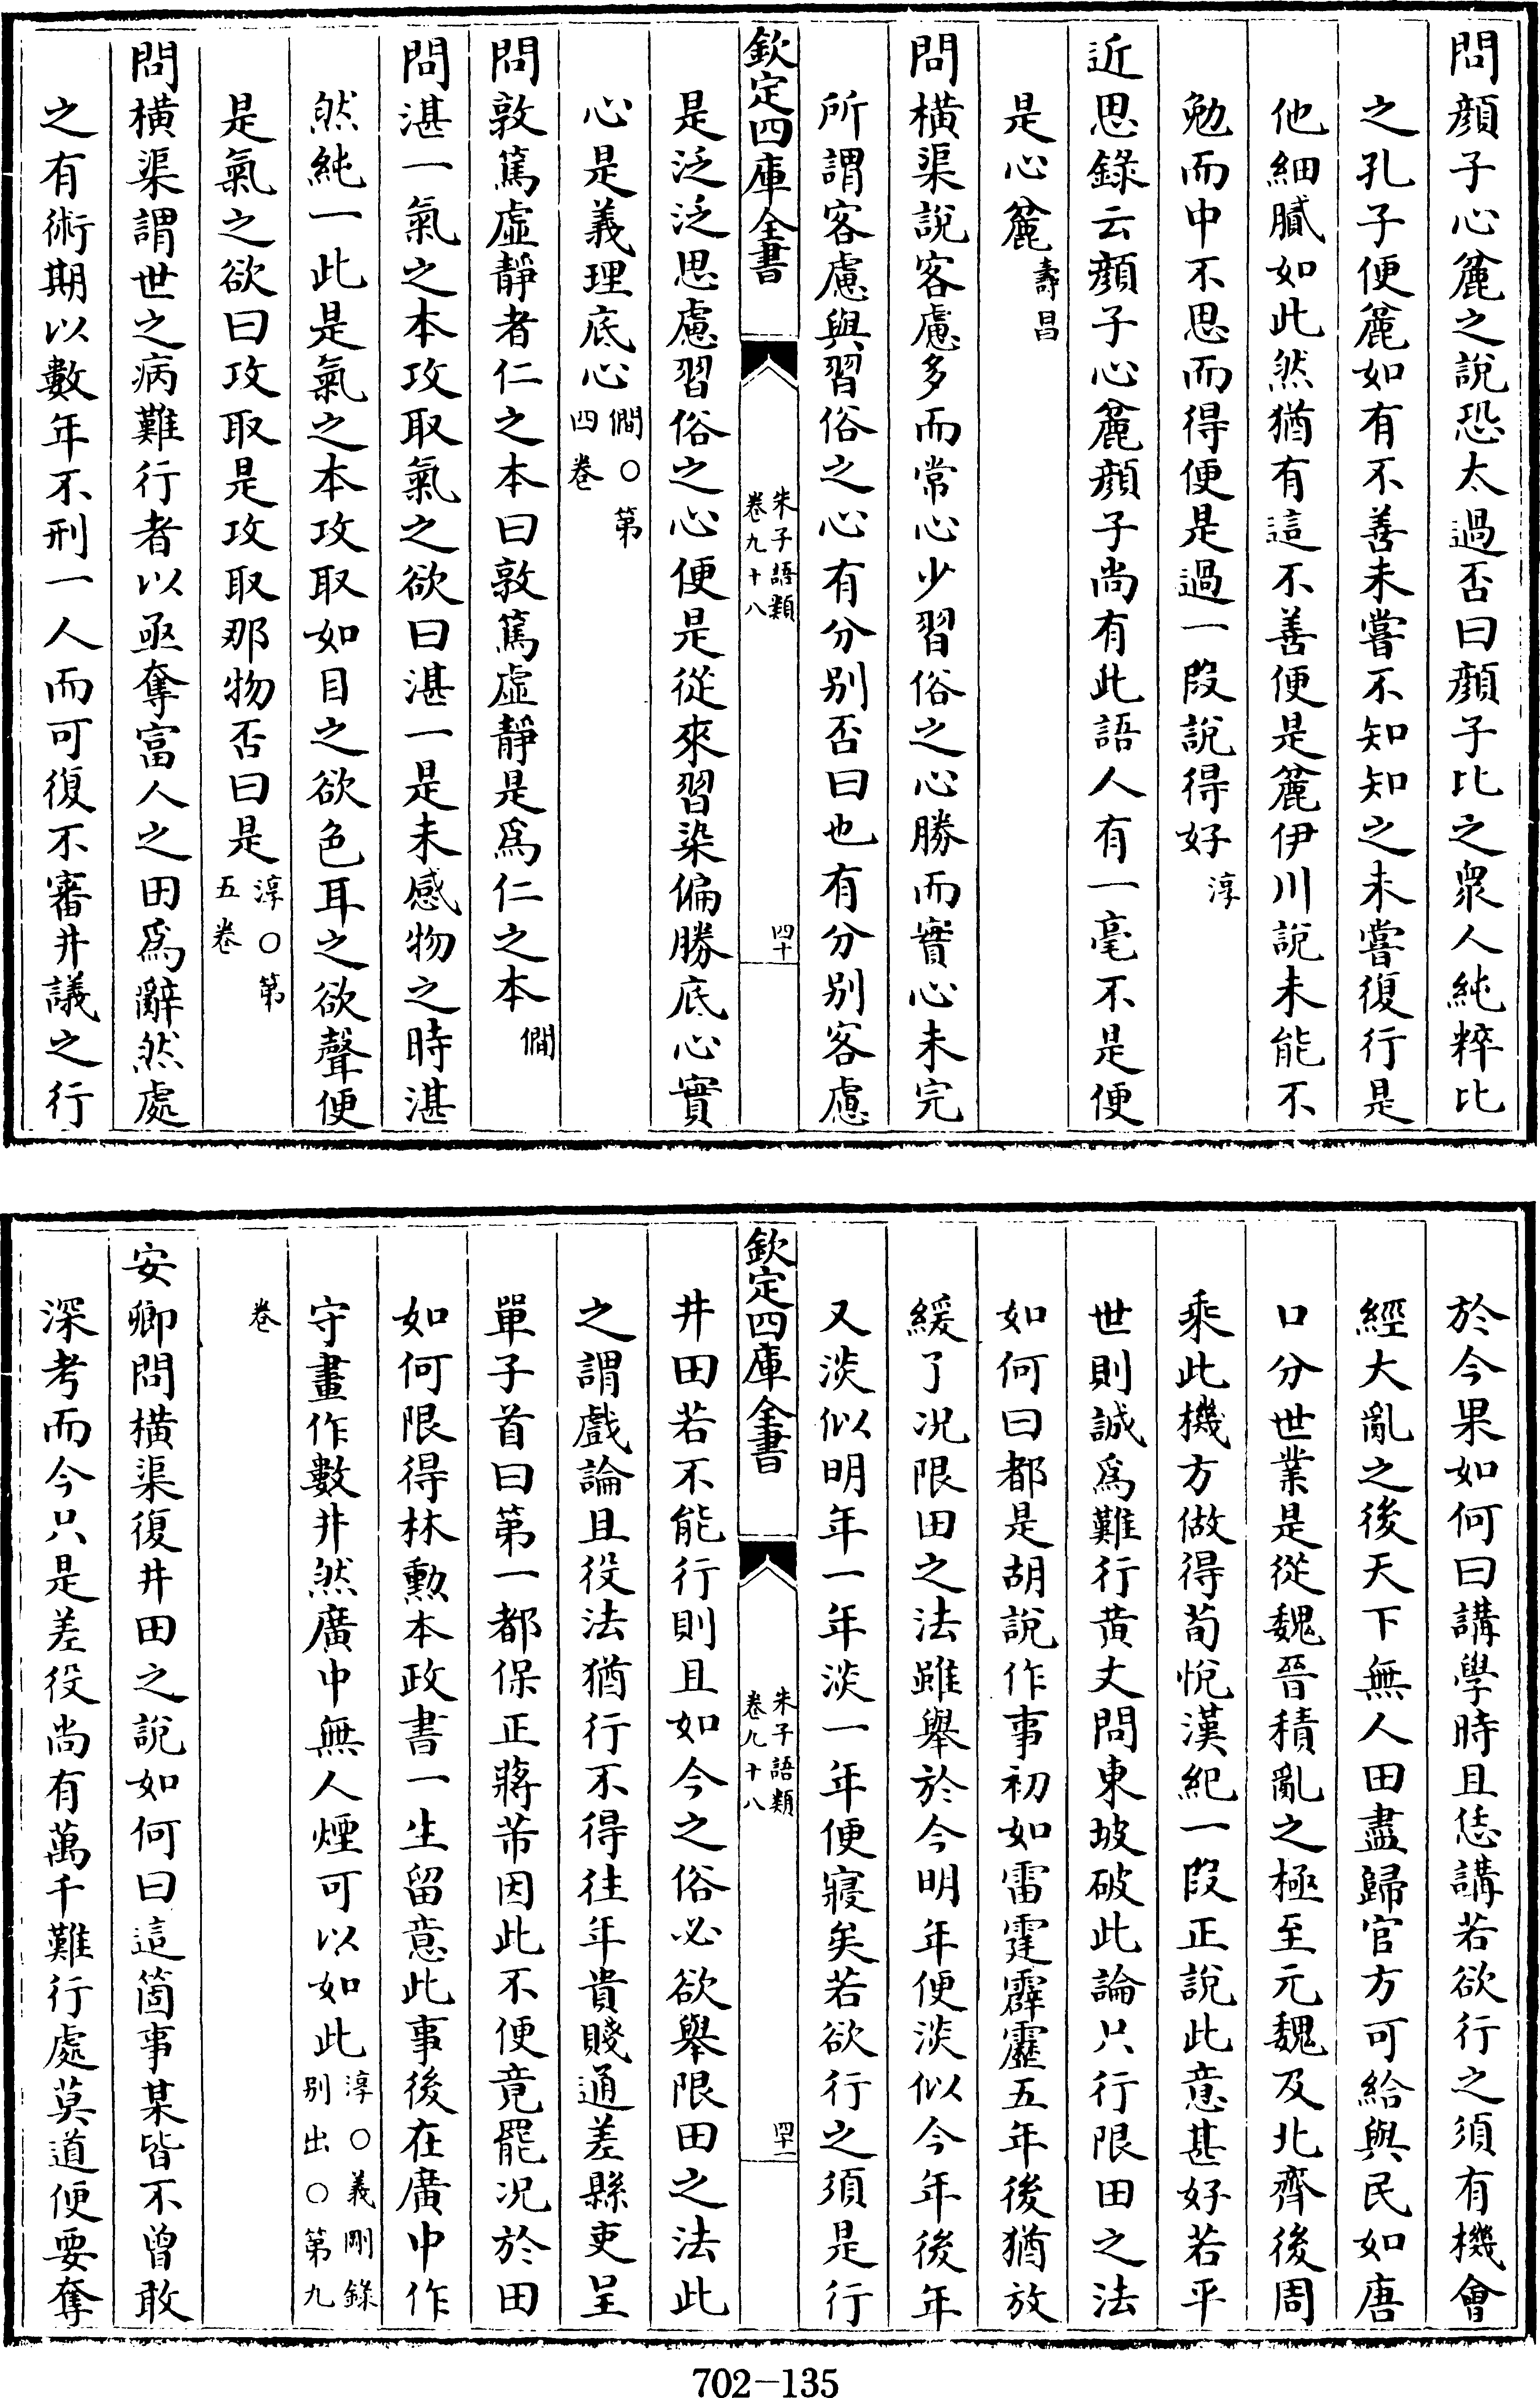 問顔子心麄之說恐太過否曰顔子比之衆人純粹比
之孔子便麄如有不善未嘗不知知之未嘗復行是
他細膩如此然猶有這不善便是麄伊川說未能不
勉而中不思而得便是過一段說得好淳
近思錄云顔子心麄顔子尚有此語人有一毫不是便
是心麄壽昌
問橫渠說客慮多而常心少習俗之心勝而實心未完
所謂客慮與習俗之心有分别否曰也有分别客慮
欽定四庫全書
朱子語類
卷九十八
四十
是泛泛思慮習俗之心便是從來習染偏勝底心實
心是義理底心僩○第四卷
問敦篤虛靜者仁之本曰敦篤虛靜是爲仁之本僩
問湛一氣之本攻取氣之欲曰湛一是未感物之時湛
然純一此是氣之本攻取如目之欲色耳之欲聲便
是氣之欲曰攻取是攻取那物否曰是淳○第五卷
問橫渠謂世之病難行者以亟奪富人之田爲辭然處
之有術期以數年不刑一人而可復不審井議之行
於今果如何曰講學時且恁講若欲行之須有機會
經大亂之後天下無人田盡歸官方可給與民如唐
口分世業是從魏晉積亂之極至元魏及北齊後周
乘此機方做得荀悅漢紀一段正說此意甚好若平
世則誠爲難行黄丈問東坡破此論只行限田之法
如何曰都是胡說作事初如雷霆霹靂五年後猶放
緩了况限田之法雖舉於今明年便淡似今年後年
又淡似明年一年淡一年便寢矣若欲行之須是行
欽定四庫全書
朱子語類
卷九十八
四十一
井田若不能行則且如今之俗必欲舉限田之法此
之謂戲論且役法猶行不得往年貴賤通差縣吏呈
單子首曰第一都保正蔣芾因此不便竟罷况於田
如何限得林勲本政書一生留意此事後在廣中作
守畫作數井然廣中無人煙可以如此淳○義剛錄别出○第九
卷
安卿問橫渠復井田之說如何曰這箇事某皆不曾敢
深考而今只是差役尚有萬千難行處莫道便要奪
702-135